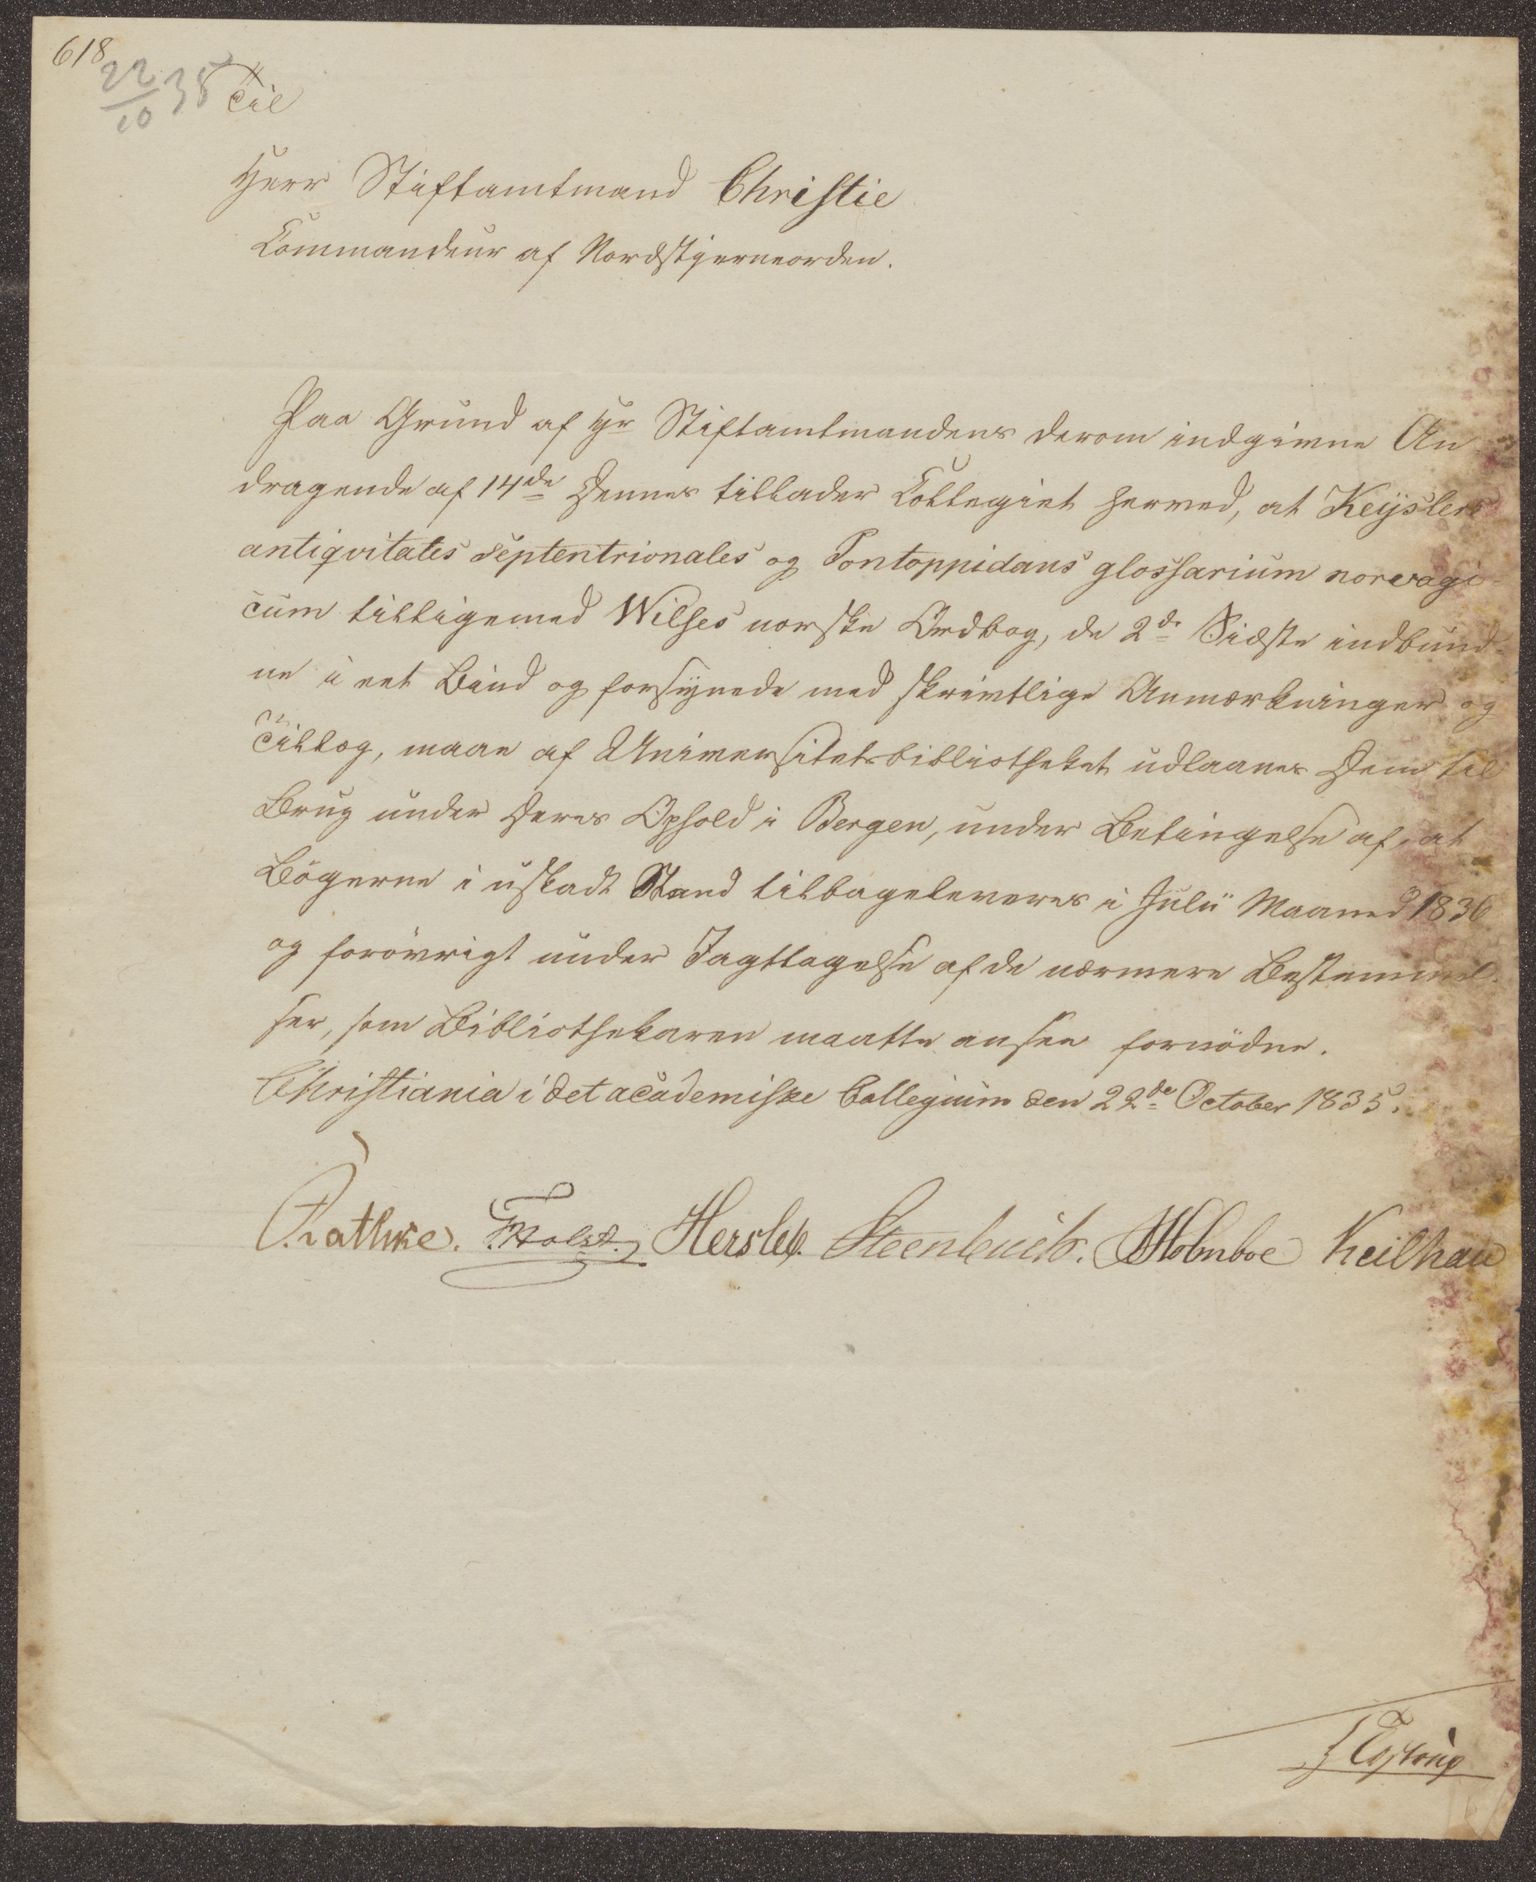 618
22/10 35
Til
Herr Stiftamtmand Christie
Commandeur af Nordstjerneorden.
Paa Grund af Hr Stiftamtmandens derom indgivne An
dragende af 14de dennes tillader Collegiet herved, at Keyslers
antiqvitates septentrionales og Pontoppidans glossarium norvagi-
cum tilligemed Wilses norske Ordbog, de 2de Sidste indbund-
ne i eet Bind og forsynede med skrivtlige Anmærkninger og
Tillæg, maae af Universitetsbibliotheket udlaanes Dem til
Brug under Deres Ophold i Bergen, under Betingelse af, at
Bögerne i uskadt Stand tilbageleveres i Julii Maaned 1836
og forövrigt under Iagttagelse af de nærmere Bestemmel-
ser, som Bibliothekaren maatte ansee fornödne.
Christiania i det academiske Collegium den 22de October 1835.
Rathke. F. Holst. Hersleb. Steenbuch. Holmboe Keilhau